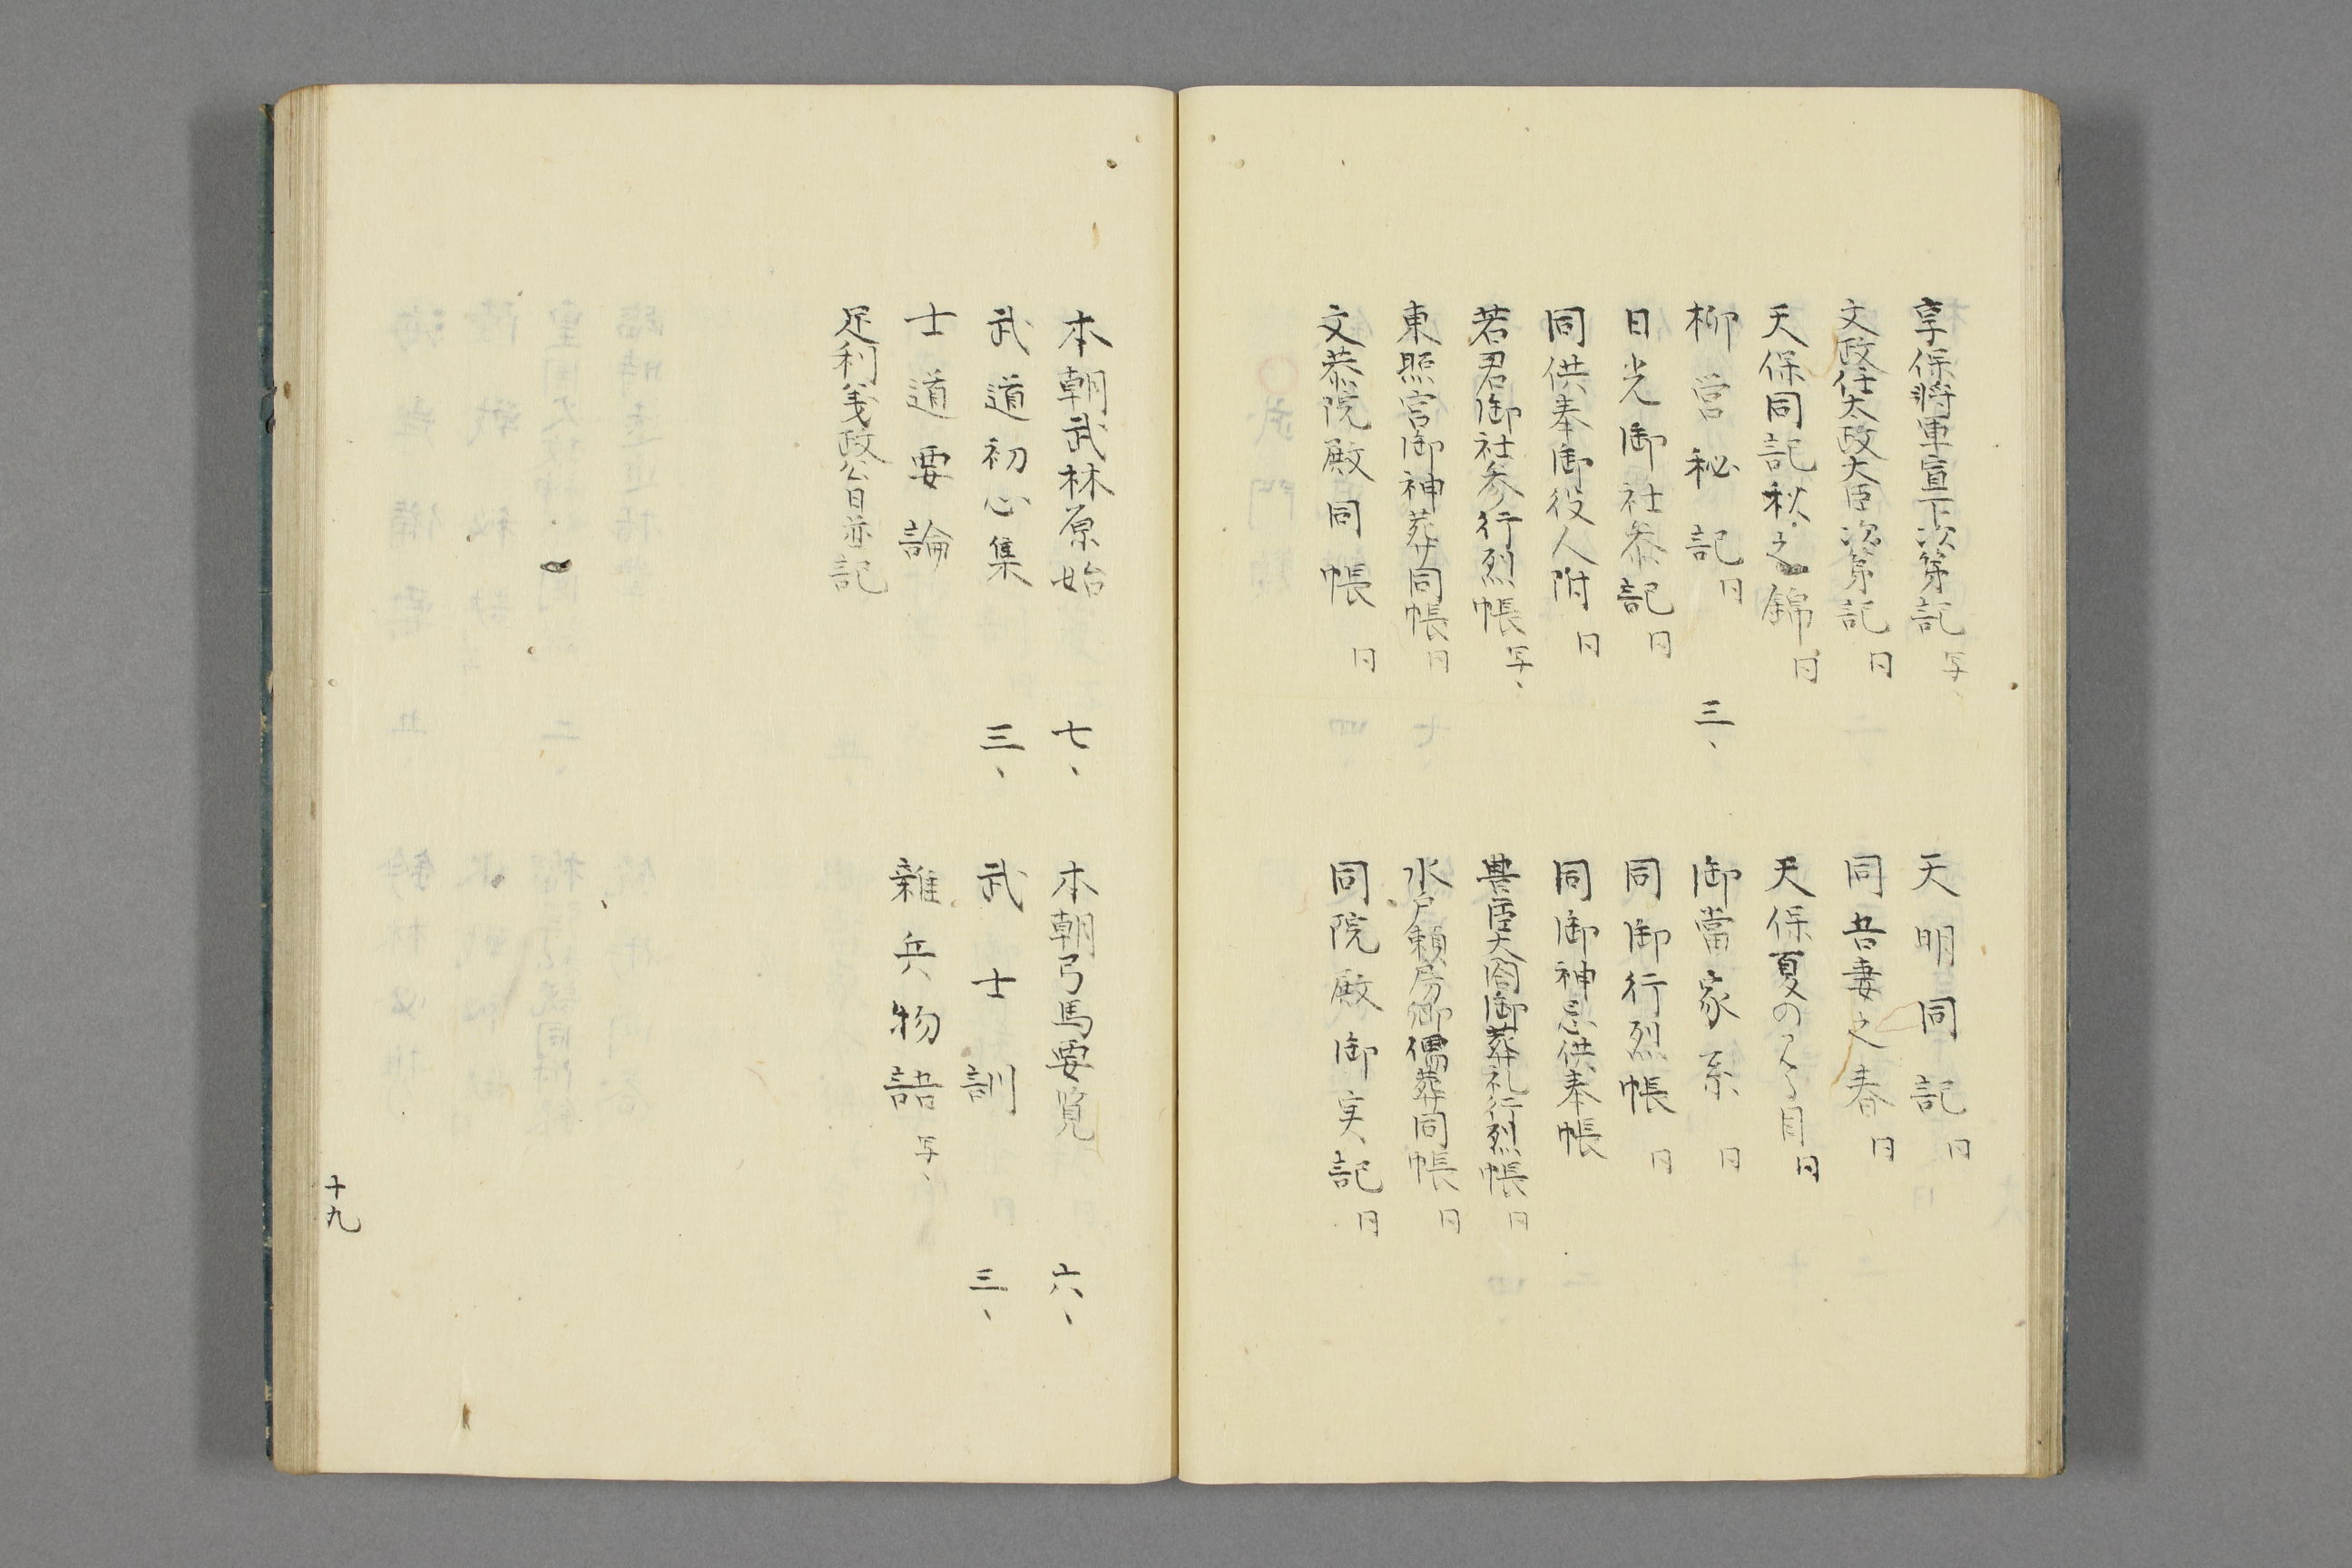 享保將軍宣下次第記 写、
天明同記 同
文政任太政大臣次第記 同
同吾妻之春 同
天保同記秋之錦 同
天保夏のくる月 同
柳營秘記 同 三、
御當家系 同
日光御社参記 同
同御行烈帳 同
同供奉御役人附 同
同御神忌供奉帳
若君御社参行烈帳 写、
豊臣大閤御葬礼行烈帳 同
東照宮御神葬同帳 同
水戸頼房御儒葬同帳 同
文恭院殿同帳 同
同院殿御実記 同
本朝武林原始 七、
本朝弓馬要覧 六、
武道初心集 三、
武士訓 三、
士道要論
雜兵物語 写、
足利義政公日並記
十九